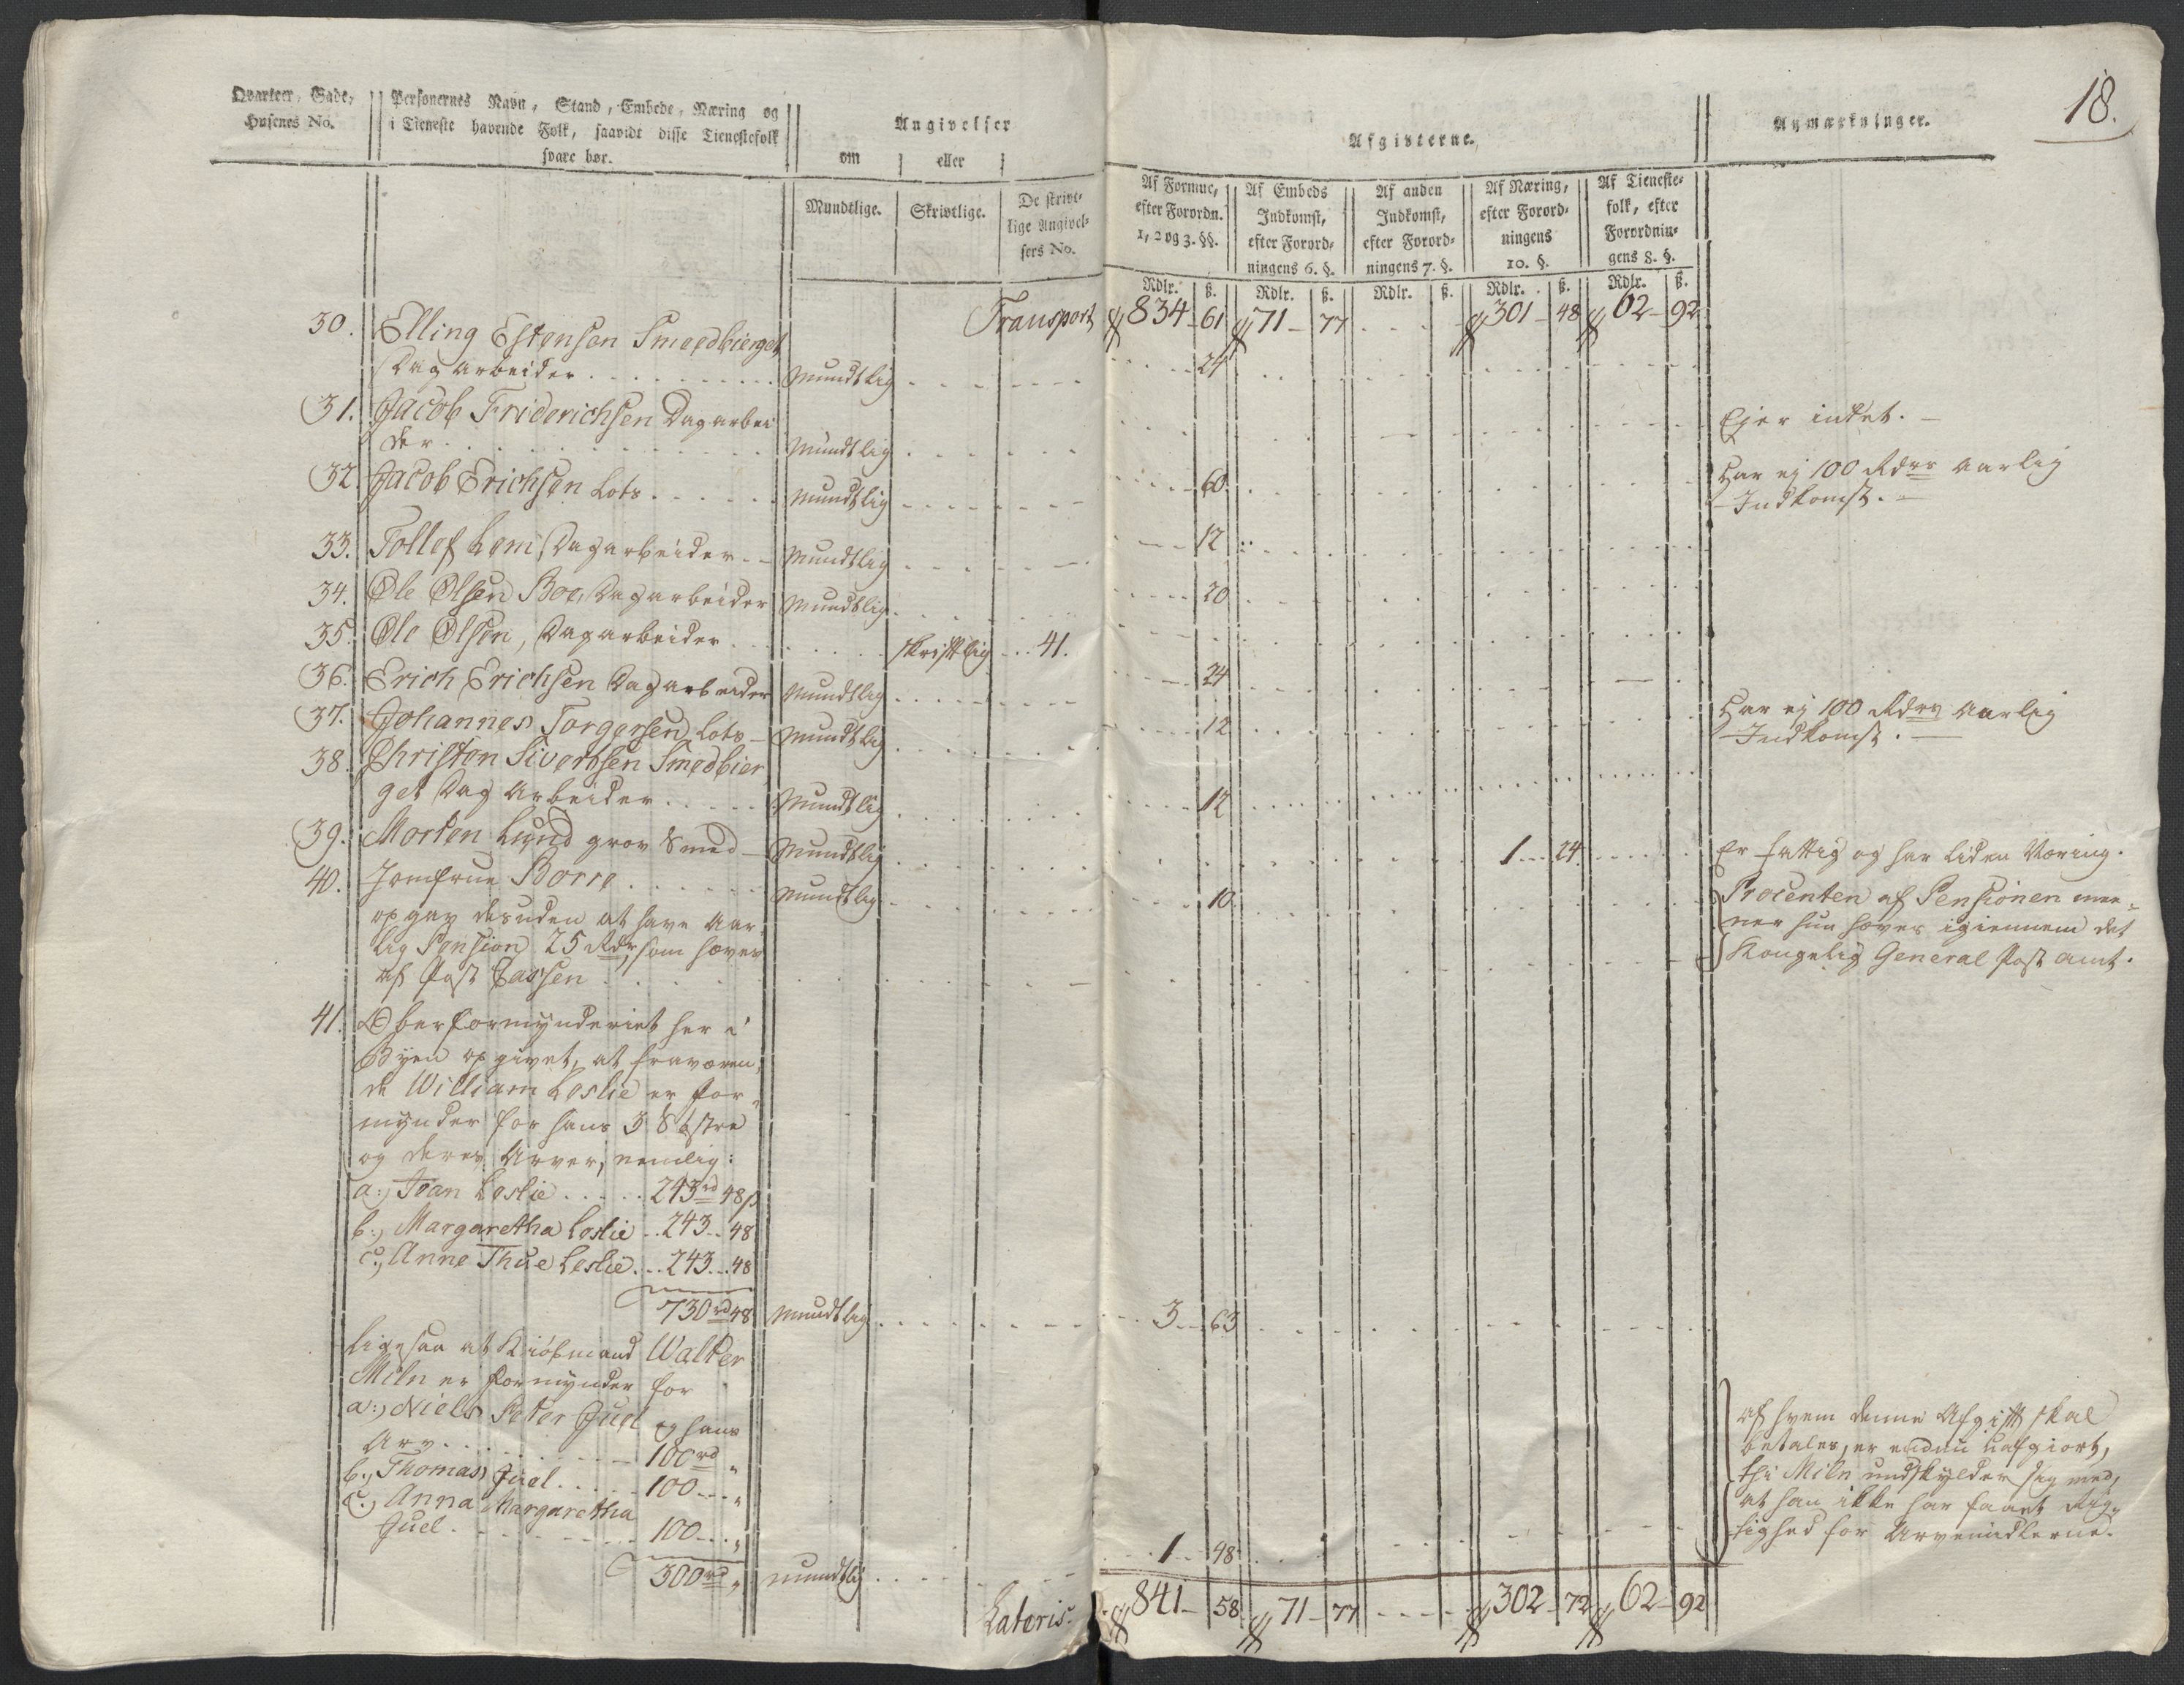 18.
Qvarteer, Gade, Husenes No.
Personernes Navn, Stand, Embede, Næring og
i Tieneste havende Folk, saavidt disse Tienestefolk
svare bør.
Angivelser
om eller
Mundtlige. Skrivtlige. De skrivt-
lige Angivel-
sers No.
Afgivterne.
Af Formue,
efter Forordn.
1, 2 og 3. §§.
Af Embeds
Indkomst,
efter Forord-
ningens 6. §.
Af anden
Indkomst,
efter Forord-
ningens 7. §.
Af Næring,
efter Forord-
ningens
10. §.
Af Tieneste-
folk, efter
Forordnin-
gens 8. §.
Anmærkninger.
Rdlr. ß. Rdlr. ß. Rdlr. ß. Rdlr. ß. Rdlr. ß.
Transport 834 61 71 77 301 48 62 92
30. Elling Estensen Smedbierget
Dagarbeider mundtlig 24
31. Jacob Friderichsen Dagarbei
der mundtlig Ejer intet.
32. Jacob Erichsen Lots mundtlig 60 Har ej 100 Rdrs aarlig
Indkomst.
33. Tollef Lem Dagarbeider mundtlig 12
34. Ole Olsen Boe, Dagarbeider mundtlig 20
35. Ole Olsen, Dagarbeider skriftlig 41.
36. Erich Erichsen Dagarbeider mundtlig 24
37. Johannes Torgersen Lots mundtlig 12 Har ej 100 Rdrs aarlig
Indkomst.
38. Christen Sivertsen Smedbier
get Dag Arbeider mundtlig 12
39. Morten Lund grov Smed mundtlig 1 24 Er fattig og har liden Næring.
40. Jomfrue Borre mundtlig 10
opgav desuden at have aar
lig Pension 25 Rdr, som hæves
af Post Cassen
Procenten af Pensionen mee-
ner hun hæves igiennem det
Kongelig General Post Amt.
41. Oberformynderiet her i
Byen opgivet, at fraværen-
de William Leslie er for-
mynder for hans 3 Søstre
og deres Arver, nemlig:
a:, Jean Leslie 243 rd 48 ß
b:, Margaretha Leslie 243 48
c:, Anne Thue Leslie 243 48
730 rd 48 mundtlig 3 63
ligesaa at Kiøbmand Walter
Miln er formynder for
a:, Niels Peter Juel og hans
Arv 100 rd "
b:, Thomas Juel 100 "
c:, Anna Margaretha
Juel 100 "
300 rd " mundtlig 1 48
af hvem denne Afgift skal
betales, er endnu uafgiort,
thi Miln undskylder sig med,
at han ikke har faaet Rig-
tighed for Arvemidlerne.
Lateris 841 58 71 77 302 72 62 92